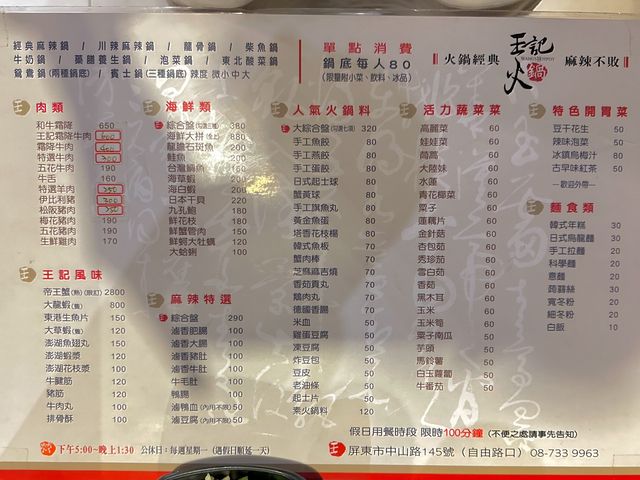 經典麻辣鍋 / 川辣麻辣鍋 / 龍骨鍋 / 柴魚鍋
牛奶鍋 / 藥膳養生鍋 / 泡菜鍋 / 東北酸菜鍋
鴛鴦鍋(兩種鍋底) / 賓士鍋(三種鍋底) 辣度 微小中大
單點消費
鍋底每人80
(限量附小菜、飲料、冰品)
火鍋經典
王記
WANGS HTPOY
火鍋
麻辣不敗
肉類
和牛霜降 650
王記霜降牛肉 600
霜降牛肉 400
特選牛肉 300
五花牛肉 190
牛舌 160
特選羊肉 250
伊比利豬 300
松阪豬肉 250
梅花豬肉 190
五花豬肉 190
生鮮雞肉 170
王記風味
帝王蟹(熟)(限訂) 2800
大龍蝦(隻) 800
東港生魚片 150
大草蝦(隻) 120
澎湖魚翅丸 150
澎湖蝦漿 120
澎湖花枝漿 100
牛腱筋 120
豬筋 120
牛肉丸 100
排骨酥 100
海鮮類
綜合盤(勾選三種) 380
海鮮大拼 880
龍膽石斑魚 200
鮭魚 200
台灣鯛魚 160
海草蝦 200
海白蝦 200
日本干貝 220
九孔鮑 180
鮮花枝 180
鮮蟹管肉 150
鮮蚵大牡蠣 120
大蛤蜊 100
麻辣特選
綜合鍋 290
滷香肥腸 100
滷香大腸 100
滷香豬肚 100
滷香牛肚 100
牛毛肚 100
鴨腸 100
滷鴨血(內用不限) 50
滷豆腐(內用不限) 50
人氣火鍋料
大綜合盤(勾選七項) 320
手工魚餃 80
手工燕餃 80
手工蛋餃 80
日式起士球 80
蟹黃球 80
手工旗魚丸 80
黃金魚蛋 80
塔香花枝楊 80
韓式魚板 70
蟹肉棒 70
芝麻麻吉燒 70
香菇貢丸 70
鵝肉丸 70
德國香腸 70
米血 50
雞蛋豆腐 50
凍豆腐 50
炸豆包 50
豆皮 50
老油條 50
起士片 50
素火鍋料 120
活力蔬菜菜
高麗菜 60
娃娃菜 60
茼萵 60
大陸妹 60
水蓮 60
青花椰菜 60
栗子 60
蓮藕片 60
金針菇 60
杏包菇 60
秀珍菇 60
雪白菇 60
香菇 60
黑木耳 60
玉米 60
玉米筍 60
栗子南瓜 60
芋頭 60
馬鈴薯 60
白玉蘿蔔 60
牛番茄 60
特色開胃菜
豆干花生 50
辣味泡菜 50
冰鎮烏梅汁 80
古早味紅茶 50
—歡迎外帶—
麵食類
韓式年糕 30
日式烏龍麵 30
手工拉麵 20
科學麵 20
意麵 20
蒟蒻絲 30
寬冬粉 20
細冬粉 20
白飯 10
假日用餐時段 限時100分鐘 (不便之處請事先告知)
下午5:00~晚上1:30 公休日:每週星期一 (遇假日順延一天)
屏東市中山路145號 (自由路口) 08-733 9963